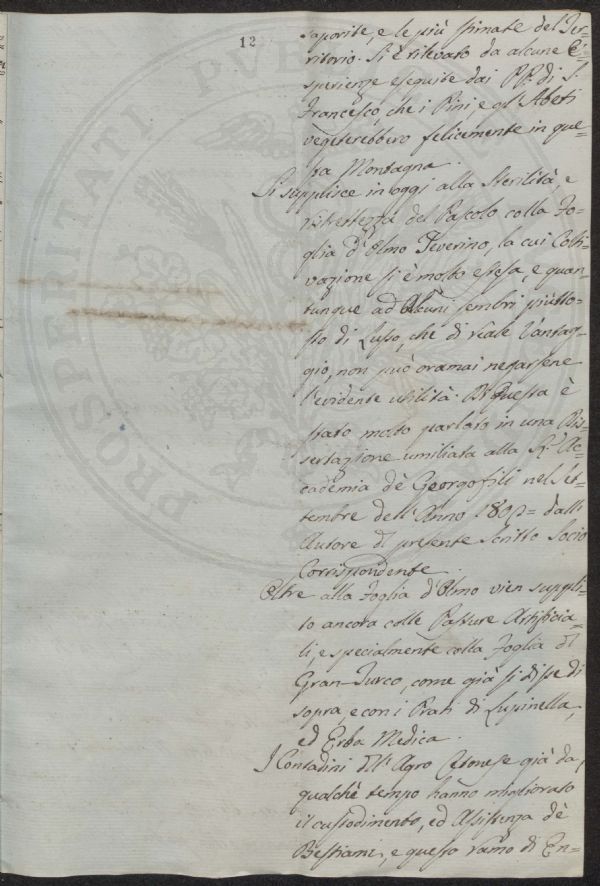 12
saporite, e le più stimate del Ter-
ritorio. Si è rilevato da alcune E-
sperienze eseguite dai PP. di S.
Francesco, che i Pini, e gli Abeti
vegeterebbero felicemente in que-
sta Montagna.
Si supplisce in oggi alla sterilità, e
ristrettezza del Pascolo colla Fo-
glia d'Olmo Teverino, la cui Colti-
vazione si è molto estesa, e quan-
tunque ad alcuni sembri piutto-
sto di Lusso, che di reale Vantag-
gio, non può oramai negarsene
l'evidente utilità. Di Questa è
stato molto parlato in una Dis-
sertazione umiliata alla R. Ac-
cademia de Georgofili nel Set-
tembre dell'Anno 180 = dall'
Autore di presente Scritto Socio
Corrispondente.
Oltre alla foglia d'Olmo vien suppli-
to ancora colle Pasture Artificia-
li, e specialmente colla Foglia di
Gran-Turco, come già si disse di
sopra, e con i Prati di Lupinella,
ed Erba Medica.
I Contadini dell'Agro Cetonese già da
qualche tempo hanno migliorato
il custodimento, ed Assistenza de
Bestiami, e questo ramo di En-
PROSPERITATI PVBLICAE